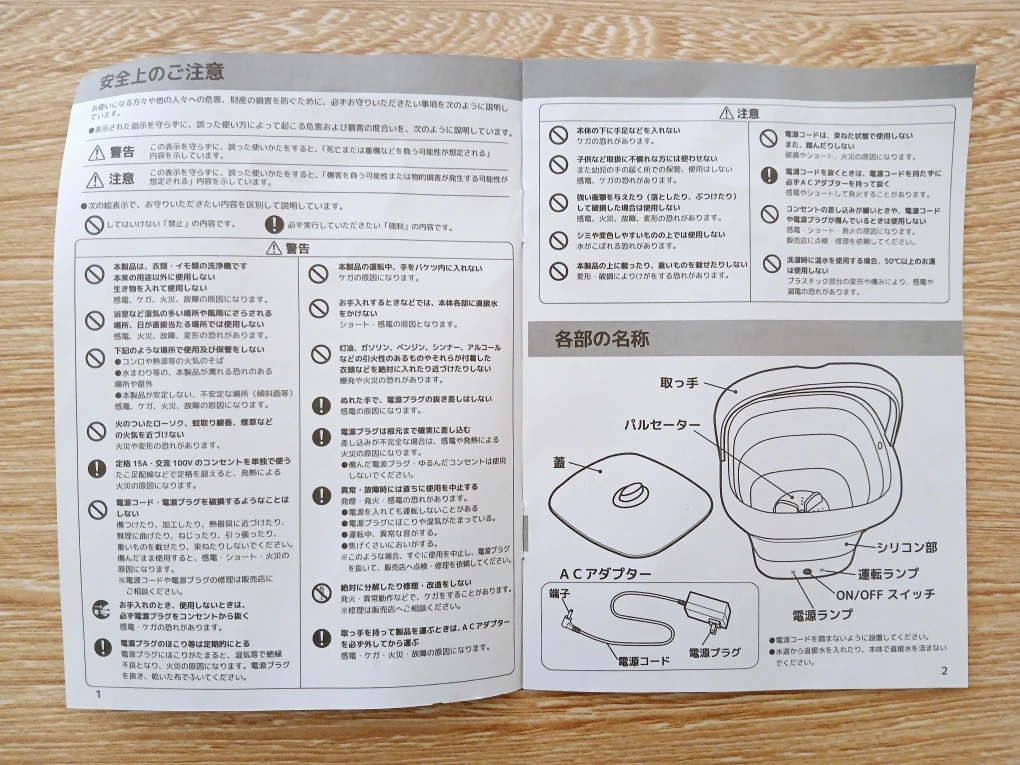 安全上のご注意
お使いになる方々や他の人々への危害、財産の損害を防ぐために、必ずお守りいただきたい事項を次のように説明し
ています。
●表示された指示を守らずに、誤った使い方によって起こる危害および損害の度合いを、次のように説明しています。
警告
この表示を守らずに、誤った使いかたをすると、「死亡または重傷などを負う可能性が想定される」
内容を示しています。
注意
この表示を守らずに、誤った使いかたをすると、「傷害を負う可能性または物的損害が発生する可能性が
想定される」内容を示しています。
●次の絵表示で、お守りいただきたい内容を区別して説明しています。
してはいけない「禁止」の内容です。
必ず実行していただきたい「強制」の内容です。
警告
本製品は、衣類・イモ類の洗浄機です
本来の用途以外に使用しない
生き物を入れて使用しない
感電、ケガ、火災、故障の原因になります。
浴室など湿気の多い場所や風雨にさらされる
場所、日が直接当たる場所では使用しない
感電、火災、故障、変形の恐れがあります。
下記のような場所で使用及び保管をしない
●コンロや熱源等の火気のそば
●水まわり等の、本製品が濡れる恐れのある
場所や屋外
●本製品が安定しない、不安定な場所（傾斜面等）
感電、ケガ、火災、故障の原因になります。
火のついたローソク、蚊取り線香、煙草など
の火気を近づけない
火災や変形の恐れがあります。
定格 15A・交流 100V のコンセントを単独で使う
たこ足配線などで定格を超えると、発熱による
火災の原因になります。
電源コード・電源プラグを破損するようなことは
しない
傷つけたり、加工したり、熱器具に近づけたり、
無理に曲げたり、ねじったり、引っ張ったり、
重いものを載せたり、束ねたりしないでください。
傷んだまま使用すると、感電・ショート・火災の
原因になります。
※電源コードや電源プラグの修理は販売店に
ご相談ください。
お手入れのとき、使用しないときは、
必ず電源プラグをコンセントから抜く
感電・ケガの恐れがあります。
電源プラグのほこり等は定期的にとる
電源プラグにほこりがたまると、湿気等で絶縁
不良となり、火災の原因になります。電源プラグ
を抜き、乾いた布でふいてください。
本製品の運転中、手をバケツ内に入れない
ケガの原因になります。
お手入れするときなどでは、本体各部に直接水
をかけない
ショート・感電の原因となります。
灯油、ガソリン、ベンジン、シンナー、アルコール
などの引火性のあるものやそれらが付着した
衣類などを絶対に入れたり近づけたりしない
爆発や火災の恐れがあります。
ぬれた手で、電源プラグの抜き差しはしない
感電の原因になります。
電源プラグは根元まで確実に差し込む
差し込みが不完全な場合は、感電や発熱による
火災の原因になります。
●傷んだ電源プラグ・ゆるんだコンセントは使用
しないでください。
異常・故障時には直ちに使用を中止する
発煙・発火・感電の恐れがあります。
●電源を入れても運転しないことがある
●電源プラグにほこりや湿気がたまっている。
●運転中、異常な音がする。
●焦げくさいにおいがする。
※このような場合、すぐに使用を中止し、電源プラグ
を抜いて、販売店へ点検・修理を依頼してください。
絶対に分解したり修理・改造をしない
発火・異常動作などで、ケガをすることがあります。
※修理は販売店へご相談ください。
取っ手を持って製品を運ぶときは、ACアダプター
を必ず外してから運ぶ
感電・ケガ・火災・故障の原因になります。
1
注意
本体の下に手足などを入れない
ケガの恐れがあります。
子供など取扱に不慣れな方には使わせない
また幼児の手の届く所での保管、使用はしない
感電、ケガの恐れがあります。
強い衝撃を与えたり（落としたり、ぶつけたり）
して破損した場合は使用しない
感電、火災、故障、変形の恐れがあります。
シミや変色しやすいものの上では使用しない
水がこぼれる恐れがあります。
本製品の上に載ったり、重いものを載せたりしない
変形・破損によりけがをする恐れがあります。
電源コードは、束ねた状態で使用しない
また、踏んだりしない
破損やショート、火災の原因になります。
電源コードを抜くときは、電源コードを持たずに
必ずACアダプターを持って抜く
感電やショートして発火することがあります。
コンセントの差し込みが緩いときや、電源コード
や電源プラグが傷んでいるときは使用しない
感電・ショート・発火の原因になります。
販売店に点検・修理を依頼してください。
洗濯時に温水を使用する場合、50℃以上のお湯
は使用しない
プラスチック部分の変形や傷みにより、感電や
漏電の恐れがあります。
各部の名称
取っ手
パルセーター
蓋
シリコン部
運転ランプ
ON/OFF スイッチ
電源ランプ
ACアダプター
端子
電源コード
電源プラグ
●電源コードを踏まないように設置してください。
●水道から直接水を入れたり、本体で直接水を汲まない
でください。
2